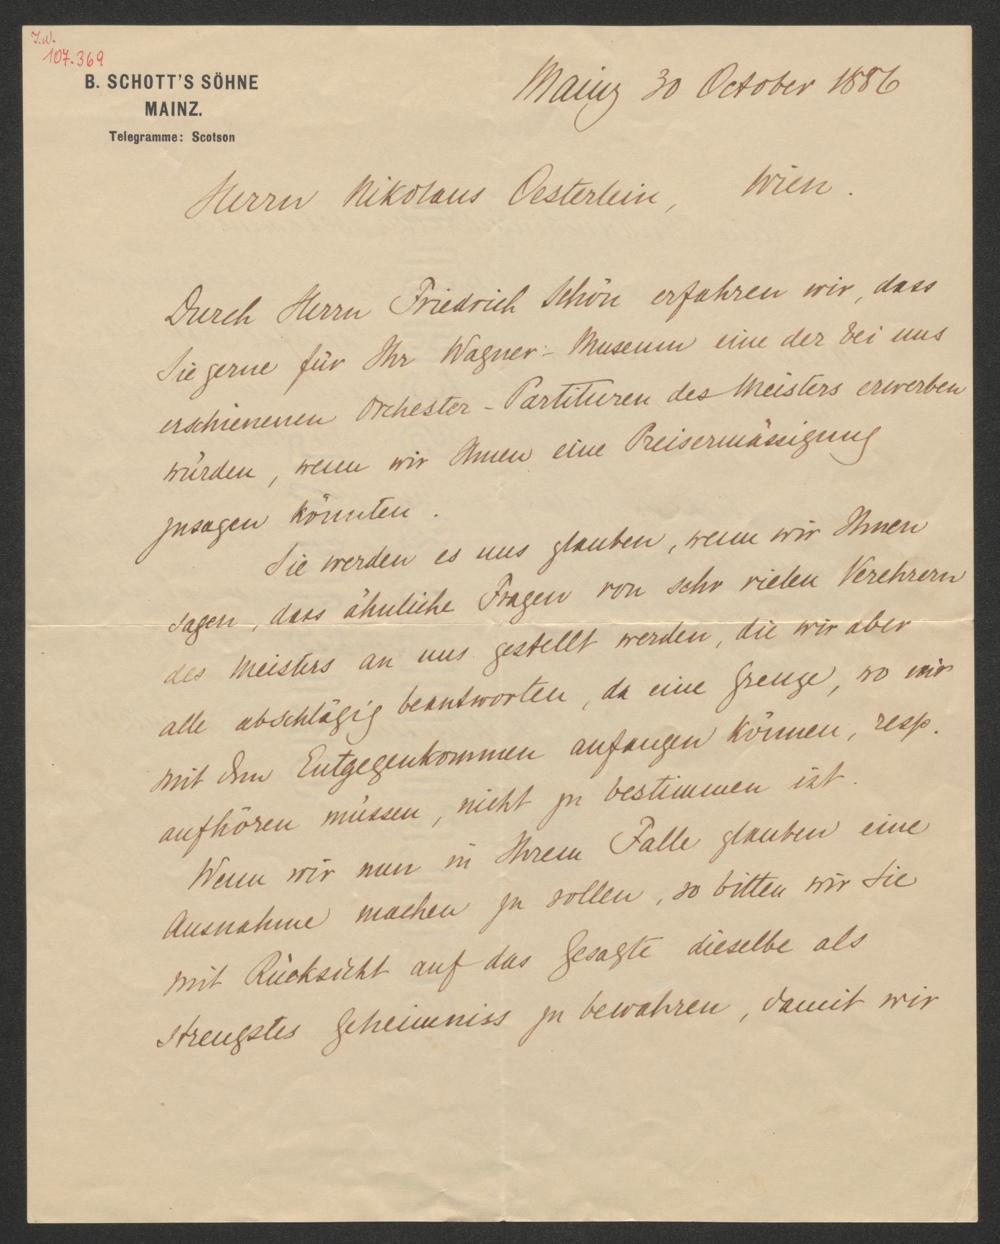 I.N.
107.369
B. SCHOTT'S SÖHNE
MAINZ.
Telegramme: Scotson
Mainz 30 October 1886
Herrn Nikolaus Oesterlein, Wien.
Durch Herrn Friedrich Schön erfahren wir, dass
Sie gerne für Ihr Wagner-Museum eine der bei uns
erschienenen Orchester-Partituren des Meisters erwerben
würden, wenn wir Ihnen eine Preisermässigung
zusagen könnten.
Sie werden es uns glauben, wenn wir Ihnen
sagen, dass ähnliche Fragen von sehr vielen Verehrern
des Meisters an uns gestellt werden, die wir aber
alle abschlägig beantworten, da eine Grenze, wo wir
mit dem Entgegenkommen anfangen können, resp.
aufhören müssen, nicht zu bestimmen ist.
Wenn wir nun in Ihrem Falle glauben eine
Ausnahme machen zu sollen, so bitten wir Sie
mit Rücksicht auf das Gesagte dieselbe als
strengstes Geheimniss zu bewahren, damit wir